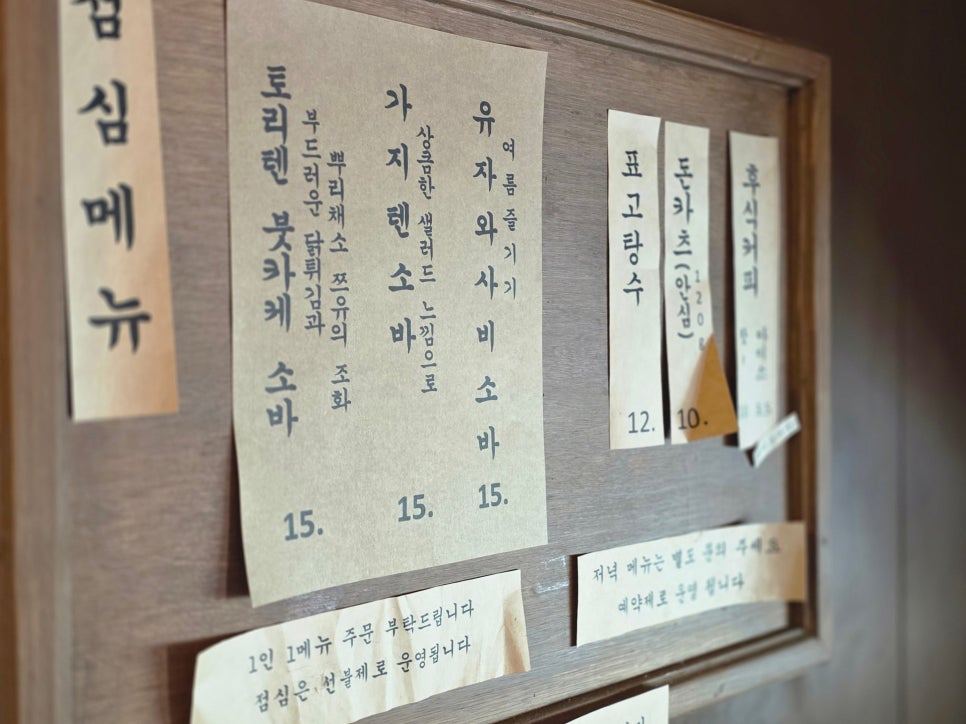 점심메뉴
토리텐 붓카케 소바
부드러운 닭튀김과
뿌리채소 쯔유의 조화
15.
가지텐소바
상큼한 샐러드 느낌으로
15.
유자와사비소바
여름 즐기기
15.
표고탕수
12.
돈카츠(안심)
120g
10.
후식커피
저녁 메뉴는 별도 문의 주세요
예약제로 운영 됩니다
1인 1메뉴 주문 부탁드립니다
점심은 선불제로 운영됩니다